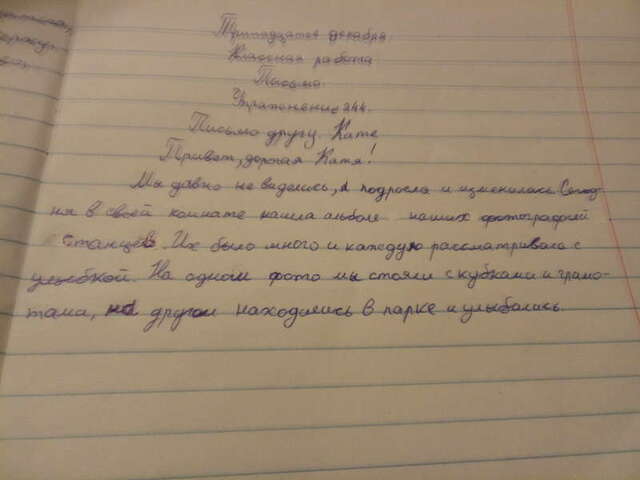 Тринадцатое декабря.
Классная работа
Письмо.
Упражнение 244.
Письмо другу. Кате
Привет, дорогая Катя!
Мы давно не виделись, я подросла и изменилась. Сегод-
ня в своей комнате нашла альбом наших фотографий
с танцев. Их было много и каждую рассматривала с
улыбкой. На одном фото мы стояли с кубками и грамо-
тами, на другом находились в парке и улыбались.